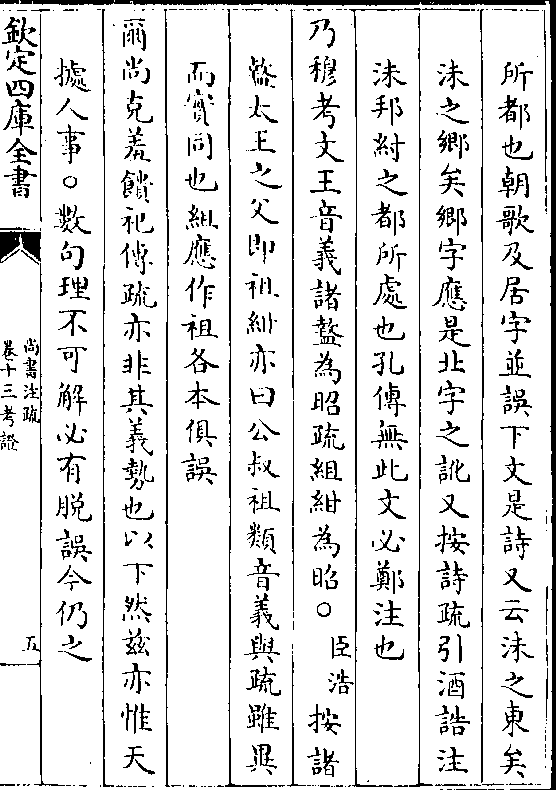 所都也朝歌及居字並誤下文是詩又云沬之東矣
沬之鄉矣鄉字應是北字之訛又按詩疏引酒誥注
沬邦紂之都所處也孔傳無此文必鄭注也
乃穆考文王音義諸盩為昭疏組紺為昭○臣浩按諸
盩太王之父即祖紺亦曰公叔祖類音義與疏雖異
而實同也組應作祖各本俱誤
爾尚克羞饋祀傳疏亦非其義勢也以下然兹亦惟天
據人事○數句理不可解必有脱誤今仍之
欽定四庫全書
尚書注疏
卷十三考證
五